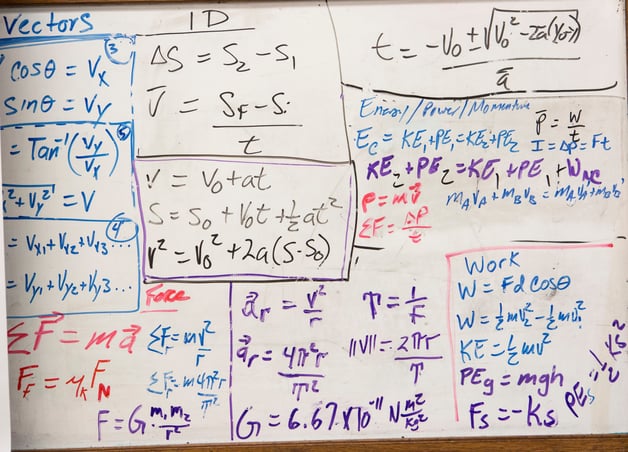 Vectors
③
cosθ = Vx
sinθ = Vy
= Tan⁻¹(Vy/Vx)
²+Vy² = V
④
= Vx1+Vx2+Vx3...
= Vy1+Vy2+Vy3...
1D
ΔS = S2 - S1
V̄ = (SF - Si)/t
V = V0+at
S = S0 + V0t + ½at²
V² = V0² + 2a(S-S0)
t = (-V0 ± √(V0² - 2a(y0-y)))/a
Energy/Power/Momentum
Ec = KE1+PE1=KE2+PE2
P̄ = W/t
I = ΔP = Ft
KE2+PE2=KE1+PE1+WNC
P = mv⃗
mAVA+mBVB = mAVA'+mBVB'
ΣF = ΔP/t
Force
ΣF⃗ = ma⃗
ΣFr = mv²/r
Ff = μkFN
ΣFr = m4π²r/T²
F = G·m1m2/r²
a⃗r = v²/r
T = 1/F
a⃗r = 4π²r/T²
||V|| = 2πr/T
G = 6.67x10⁻¹¹ N m²/kg²
Work
W = Fd cosθ
W = ½mv2² - ½mv1²
KE = ½mv²
PEg = mgh
PEs = ½ks²
Fs = -Ks